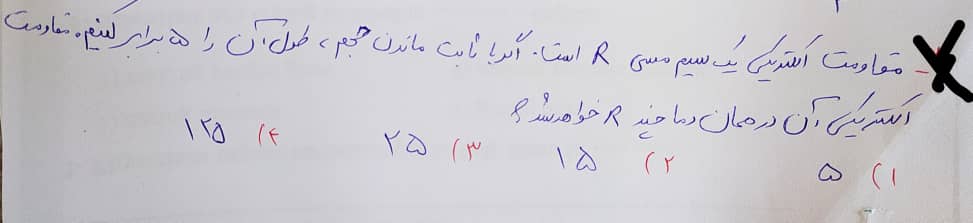 - مقاومت الکتریکی یک سیم مسی R است. اگر با ثابت ماندن حجم، طول آن را ۵ برابر کنیم. مقاومت
الکتریکی آن در همان دما چند R خواهد شد؟
۱) ۵ ۲) ۱۵ ۳) ۲۵ ۴) ۱۲۵